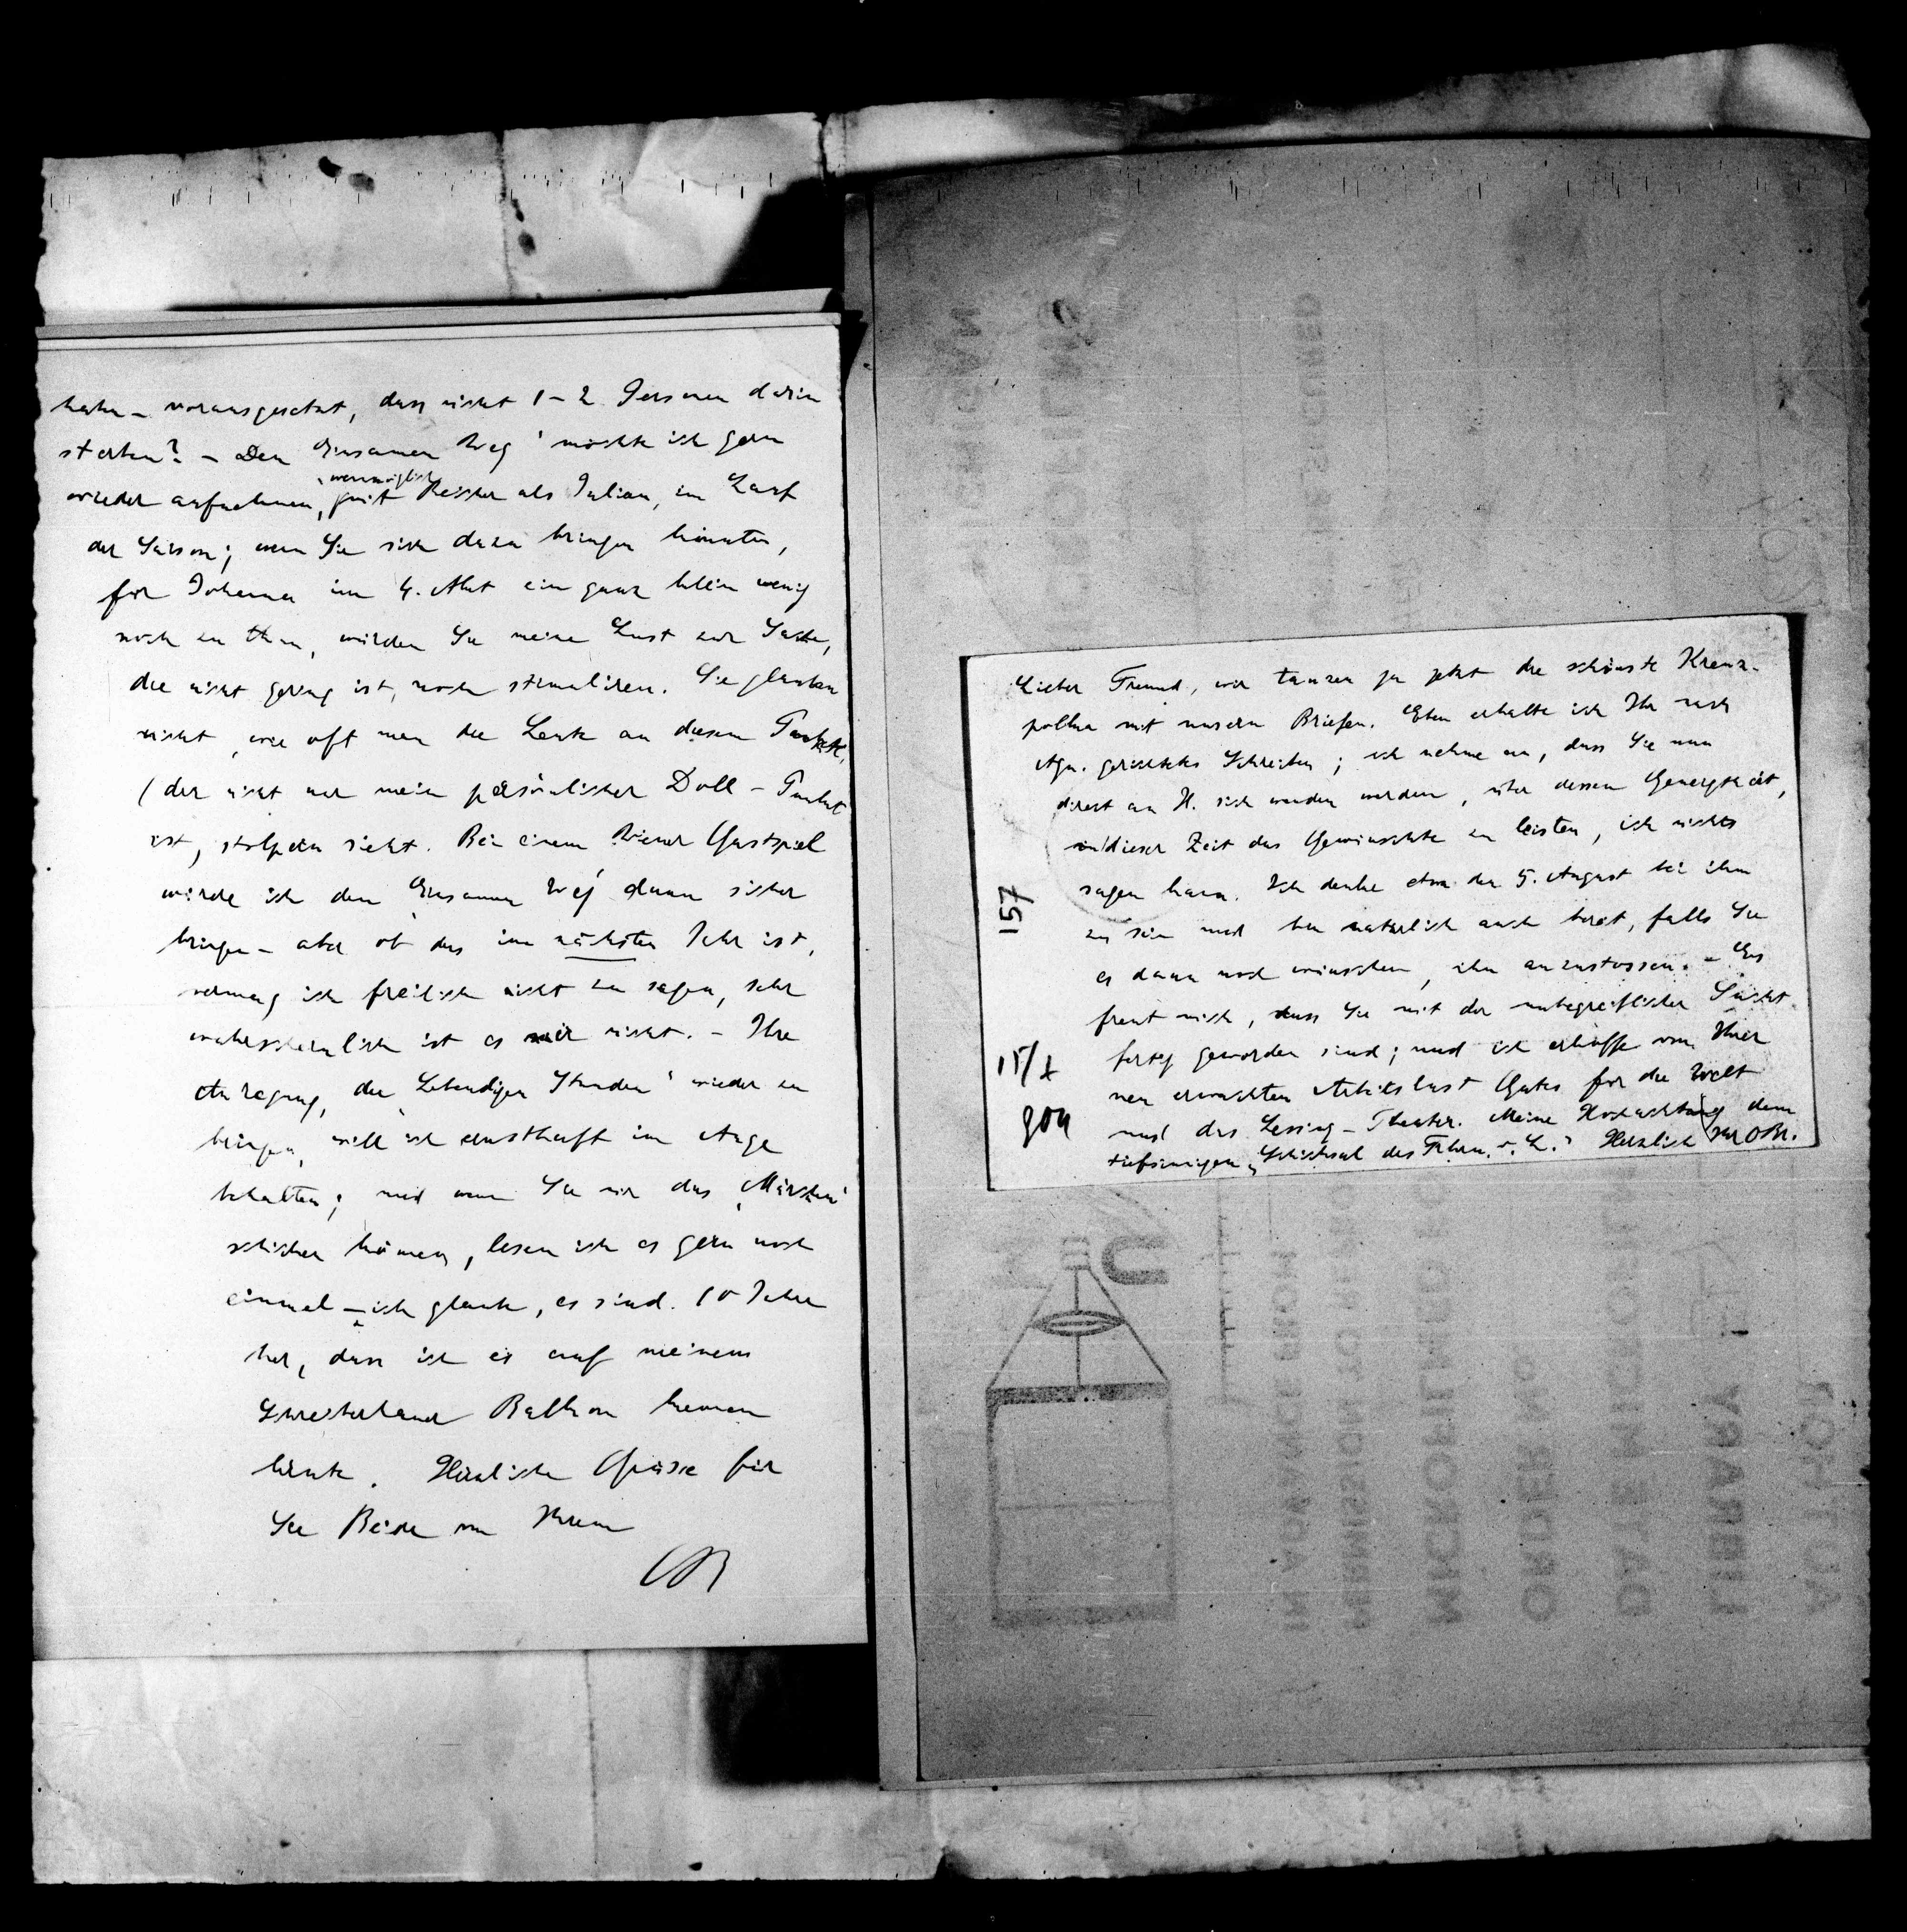 haben – vorausgesetzt, dass nicht 1–2 Personen darin
sterben? – Den „Einsamen Weg' möchte ich gern
wieder aufnehmen, womöglich mit Reicher als Julian, im Lauf
der Saison; wenn Sie sich dazu bringen könnten,
für Johanna im 4. Akt ein ganz klein wenig
noch zu thun, würden Sie meine Lust zur Sache,
die nicht gering ist, noch stimuliren. Sie glauben
nicht, wie oft man die Leute an diesem Punkte,
(der nicht nur mein persönlicher Doll-Punkt
ist, stolpern sieht. Bei einem Wiener Gastspiel
würde ich den „Einsamen Weg' dann sicher
bringen – aber ob das im nächsten Jahr ist,
vermag ich freilich nicht zu sagen, sehr
wahrscheinlich ist es mir nicht. – Ihre
Anregung, die „Lebendigen Stunden' wieder zu
bringen, will ich ernsthaft im Auge
behalten; und wenn Sie mir das „Märchen'
schicken können, lesen ich es gern noch
einmal – ich glaube, es sind 10 Jahre
her, dass ich es auf meinem
Balkon kennen
lernte. Herzliche Grüsse für
Sie Beide von Ihrem
OB
Lieber Freund, wir tanzen ja jetzt die schönste Kreuz-
polka mit unsern Briefen. Eben erhalte ich Ihr nach
Agn. gerichtetes Schreiben; ich nehme an, dass Sie nun
direct an H. sich wenden werden, über dessen Geneigtheit,
in dieser Zeit das Gewünschte zu leisten, ich nichts
sagen kann. Ich denke etwa den 5. August bei ihm
zu sein und bin natürlich auch bereit, falls Sie
es dann noch wünschen, ihn anzustossen. – Es
freut mich, dass Sie mit der unbegreiflichen
fertig geworden sind; und ich erhoffe von Ihrer
neu erwachten Arbeitslust Gutes für die Welt
und das Lessing-Theater. Meine Hochachtung dem
tiefsinnigen „Schicksal des Frhrn. v. L.' Herzlich Ihr OBr.
157
MICROFILMED
ORDER NO
LIBRARY